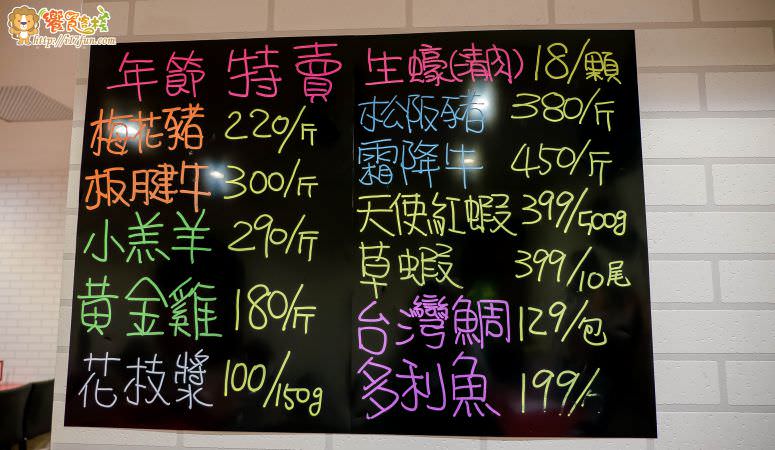 饗食萱枝
http://ii7fun.com/
年節 特賣
梅花豬 220/斤
板腱牛 300/斤
小羔羊 290/斤
黃金雞 180/斤
花枝漿 100/150g
生蠔(清肉) 18/顆
松阪豬 380/斤
霜降牛 450/斤
天使紅蝦 399/500g
草蝦 399/10尾
台灣鯛 129/包
多利魚 199/